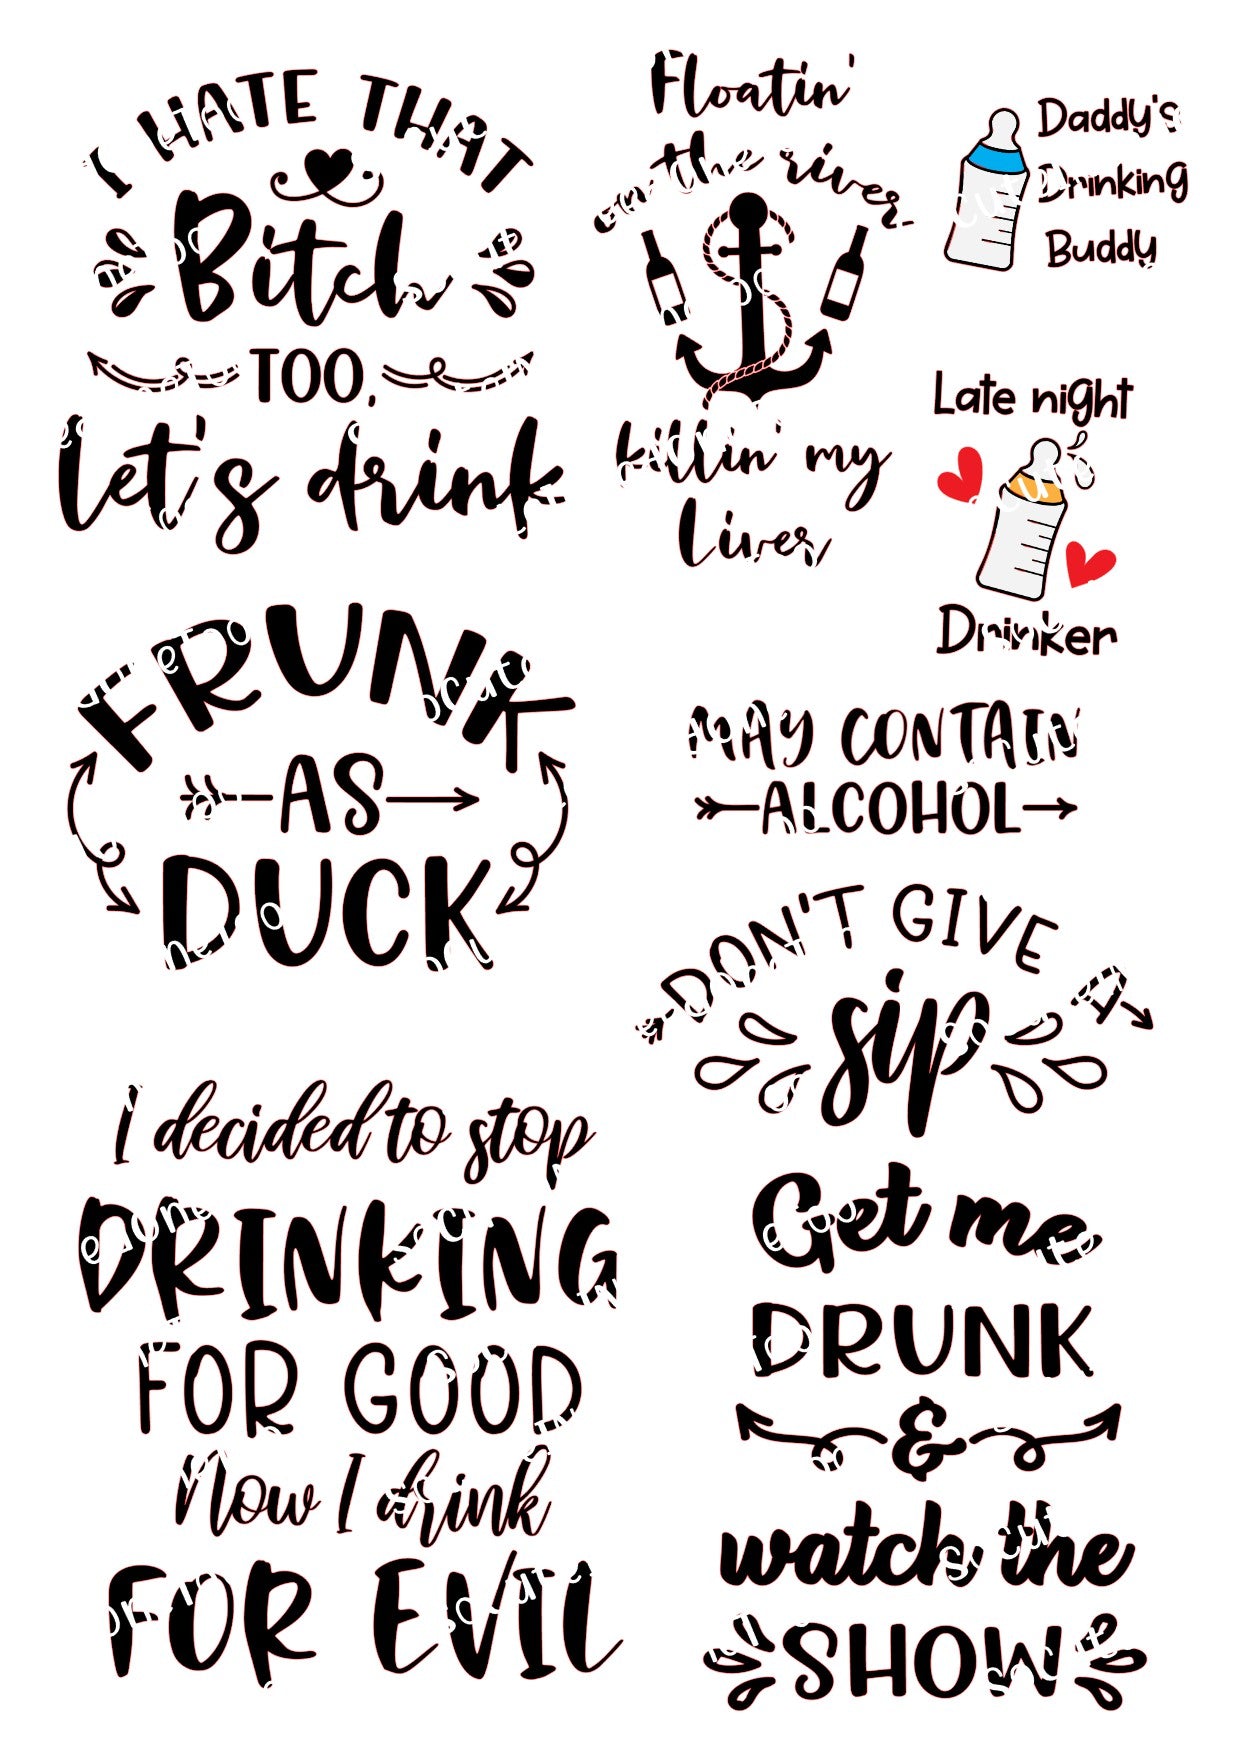 I HATE THAT
Bitch
TOO,
let's drink
Floatin'
the river
killin' my
Liver
Daddy's
Drinking
Buddy
Late night
Drinker
FRUNK
AS
DUCK
MAY CONTAIN
ALCOHOL
DON'T GIVE A
sip
I decided to stop
DRINKING
FOR GOOD
Now I drink
FOR EVIL
Get me
DRUNK
&
watch the
SHOW